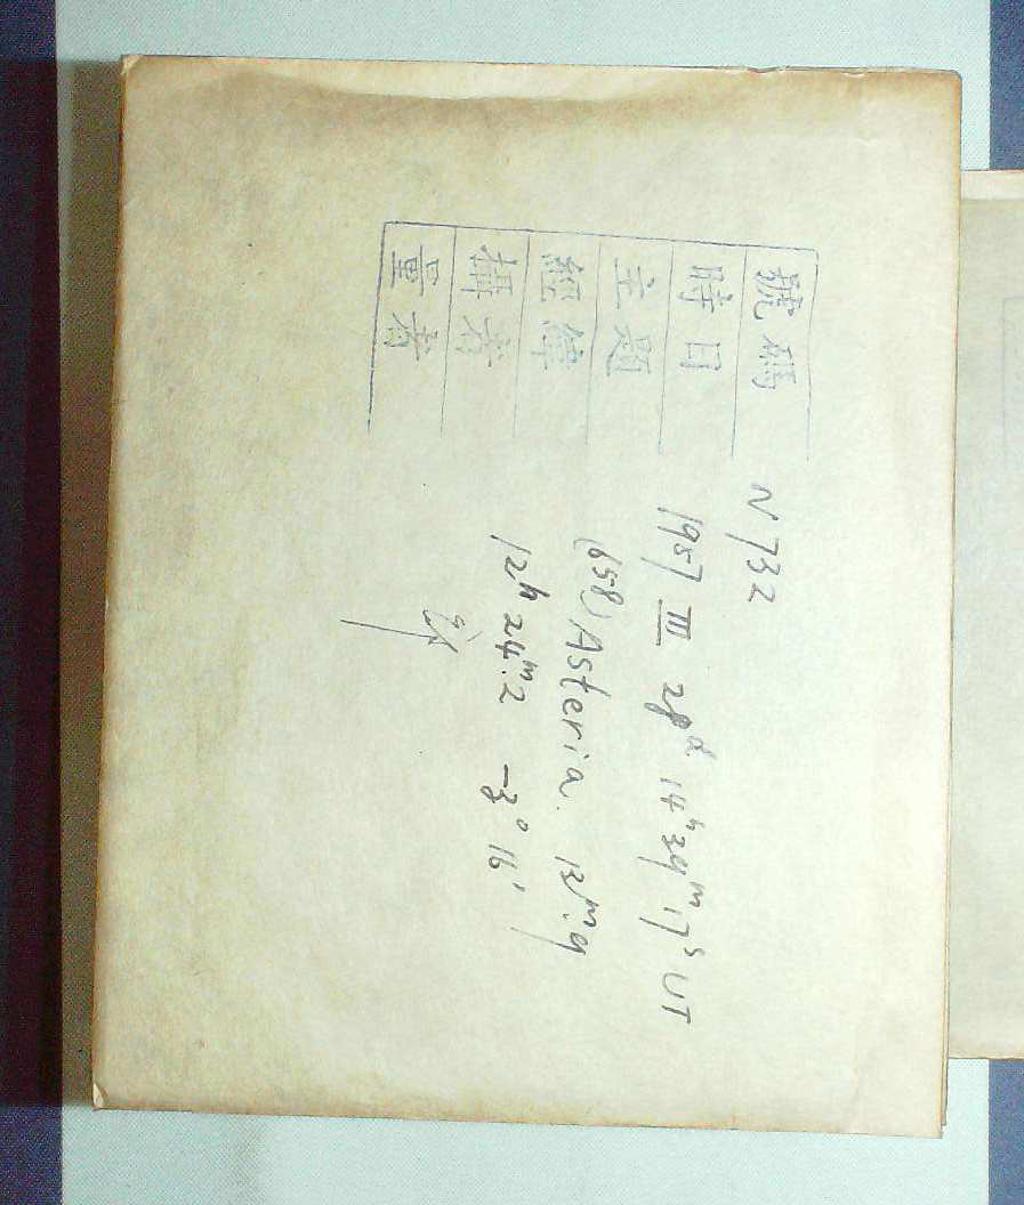 號碼 N 732
時日 1957 III 28ᵈ 14ʰ 39ᵐ 17ˢ UT
主題 (658) Asteria. 13ᵐ.9
經緯 12ʰ 24ᵐ.2 -3° 16'
攝者
量者